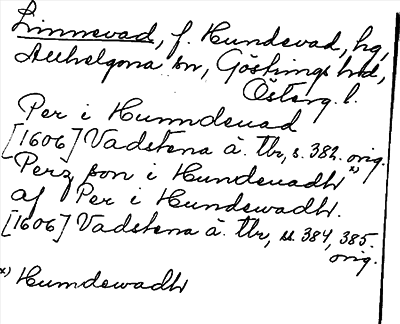 Linnevad, f. Hundevad, hg,
Allhelgona sn, Göstrings hd,
Österg. l.
Per i Humdeuad
[1606] Vadstena ä. tbr, s. 382. orig.
Perz son i Hundeuadh *)
af Per i Hundewadh.
[1606] Vadstena ä. tbr, ss. 384, 385.
orig.
*) Humdewadh